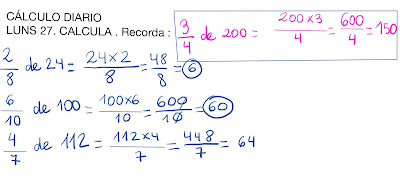 CÁLCULO DIARIO
LUNS 27. CALCULA. Recorda: 3/4 de 200 = 200x3/4 = 600/4 = 150
2/8 de 24 = 24x2/8 = 48/8 = 6
6/10 de 100 = 100x6/10 = 600/10 = 60
4/7 de 112 = 112x4/7 = 448/7 = 64